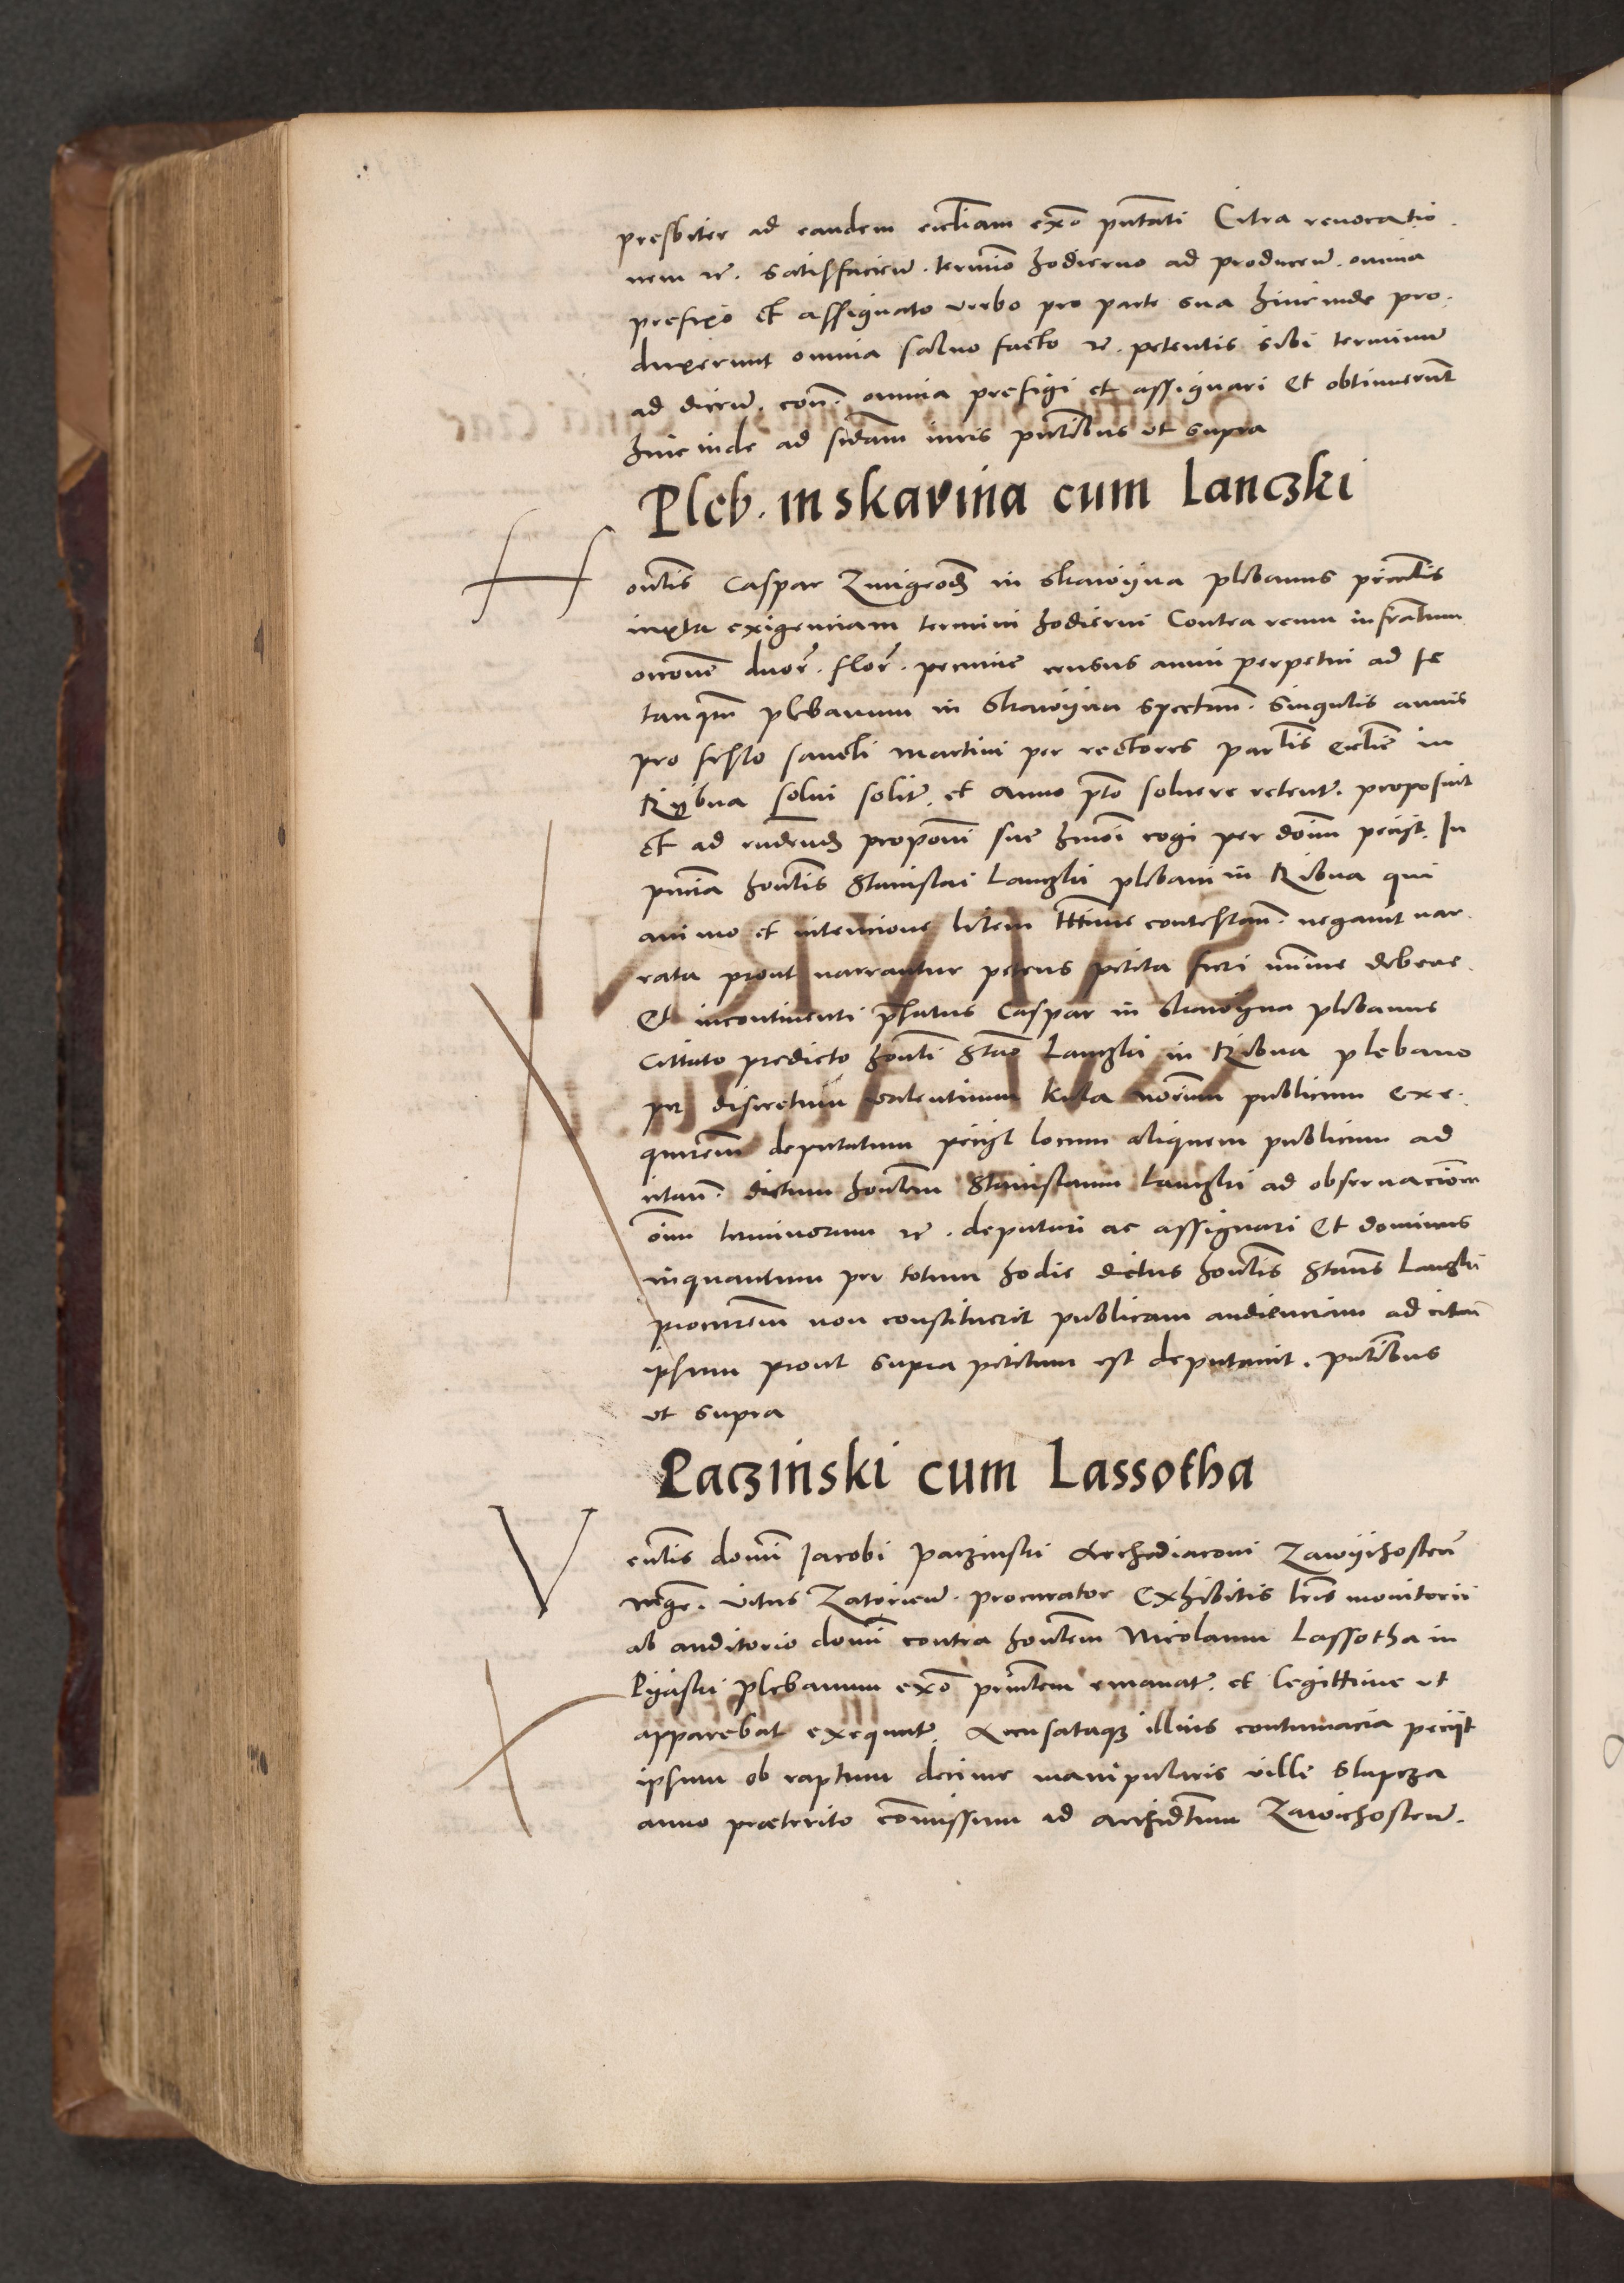 presbiter ad eandem eccliam exo pntati Citra reuocatio.
nem rc. satisfaciend. termino hodierno ad producend. omnia
prefixo et assignato verbo pro parte sua hincinde pro.
duxerunt omnia saluo facto rc. petentis sibi terminum
ad dicend. con. omnia prefigi et assignari Et obtinuerunt
hinc inde ad sndam iuris pntibus vt supra
Pleb. in skavina cum Lanczki
H
ontis Caspar Zmigrod in Skawyna plebanus
iuxta exigenciam termini hodierni Contra reum infrascriptum
duor. flor. pecunie census annui perpetui ad se
tanqm plebanum in Skawyna spectan. singulis annis
pro festo sancti martini per rectores partis ecclie in
Rybna solui solit. et anno pto soluere retent. proposuit
et ad proponi sue hmoi cogi per dom peciit. In
pncia hontis Stanislai Lanczki plebani in Ribna qui
animo et intencione litem legittime contestan. negauit nar.
rata prout narrantur petens petita fieri minime debere.
Et incontinenti pfatus Caspar in skawyna plebanus
Cittato predicto honti Stano Lanczki in Ribna plebano
per discretum valentinum Kula norium publicum exe.
deputatum peciit locum aliquem publicum ad
citan. dictum hontem Stanislaum Lanczki ad obseruacionem
oim terminorum rc. deputari ac assignari Et dominus
inquantum per totum hodie dictus hontis Stans Lanczki
procurem non constituerit publicam audienciam ad citan
ipsum prout supra petitum est deputauit. pntibus
vt supra
Paczinski cum Lassotha
V
entis domi Jacobi Paczinski Archidiaconi Zawychosten
negr. vitus Zatorien. procurator Exhibitis lris monitorii
ab auditorio domi contra hontem Nicolaum Lassotha in
Pyaski plebanum exo emanat. et legittime vt
apparebat exequut. Accusataqz illius contumacia peciit
ipsum ob raptum decime manipularis ville Slupcza
anno preterito comissum ad archidtum Zawichosten.